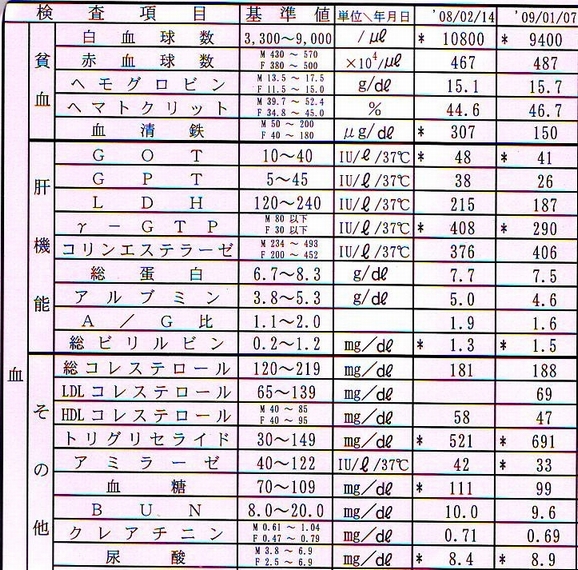 検査項目 基準値 単位＼年月日 '08/02/14 '09/01/07
貧血
白血球数 3,300～9,000 /μℓ * 10800 * 9400
赤血球数 M 430 ～ 570 F 380 ～ 500 ×10⁴/μℓ 467 487
ヘモグロビン M 13.5 ～ 17.5 F 11.5 ～ 15.0 g/dℓ 15.1 15.7
ヘマトクリット M 39.7 ～ 52.4 F 34.8 ～ 45.0 % 44.6 46.7
血清鉄 M 50 ～ 200 F 40 ～ 180 μg/dℓ * 307 150
肝機能
GOT 10～40 IU/ℓ/37℃ * 48 * 41
GPT 5～45 IU/ℓ/37℃ 38 26
LDH 120～240 IU/ℓ/37℃ 215 187
γ－GTP M 80 以下 F 30 以下 IU/ℓ/37℃ * 408 * 290
コリンエステラーゼ M 234 ～ 493 F 200 ～ 452 IU/ℓ/37℃ 376 406
総蛋白 6.7～8.3 g/dℓ 7.7 7.5
アルブミン 3.8～5.3 g/dℓ 5.0 4.6
A／G比 1.1～2.0 1.9 1.6
総ビリルビン 0.2～1.2 mg/dℓ * 1.3 * 1.5
血
その他
総コレステロール 120～219 mg/dℓ 181 188
LDLコレステロール 65～139 mg/dℓ 69
HDLコレステロール M 40 ～ 85 F 40 ～ 95 mg/dℓ 58 47
トリグリセライド 30～149 mg/dℓ * 521 * 691
アミラーゼ 40～122 IU/ℓ/37℃ 42 * 33
血糖 70～109 mg/dℓ * 111 99
BUN 8.0～20.0 mg/dℓ 10.0 9.6
クレアチニン M 0.61 ～ 1.04 F 0.47 ～ 0.79 mg/dℓ 0.71 0.69
尿酸 M 3.8 ～ 6.9 F 2.5 ～ 6.9 mg/dℓ * 8.4 * 8.9